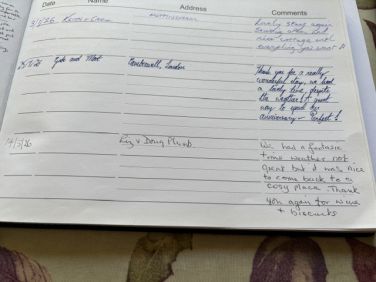 Date Name Address Comments
3/1/26 NOTTINGHAM Lovely stay again
cottage with
everything you want
25/1/26 and Matt Camberwell, London Thank you for a really
wonderful stay, we had
a lovely time, despite
the weather! A great
way to spend our
anniversary - Perfect!
14/3/26 Liz & Doug Plumb. We had a fantastic
time weather not
great but it was nice
to come back to a
cosy place. Thank
you again for wine
+ biscuits